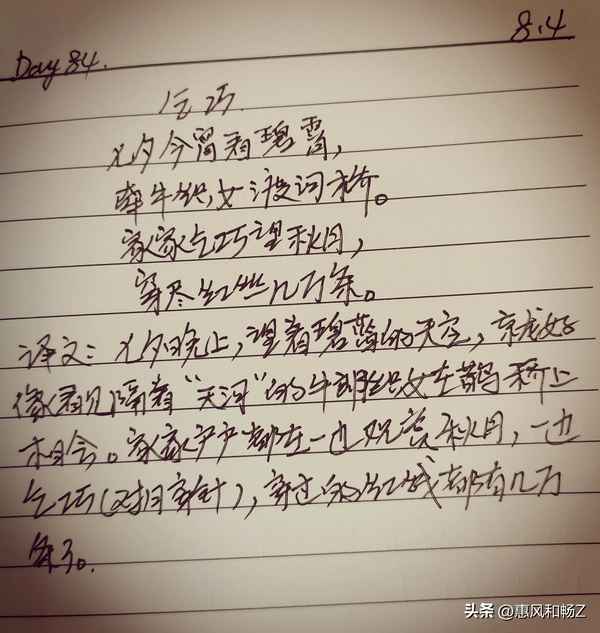 Day 84.
8.4
乞巧
七夕今宵看碧霄,
牵牛织女渡河桥。
家家乞巧望秋月,
穿尽红丝几万条。
译文:七夕晚上,望着碧蓝的天空,就好
像看见隔着“天河”的牛郎织女在鹊桥上
相会。家家户户都在一边观赏秋月,一边
乞巧(对月穿针),穿过的红线都有几万
条了。
头条 @惠风和畅Z